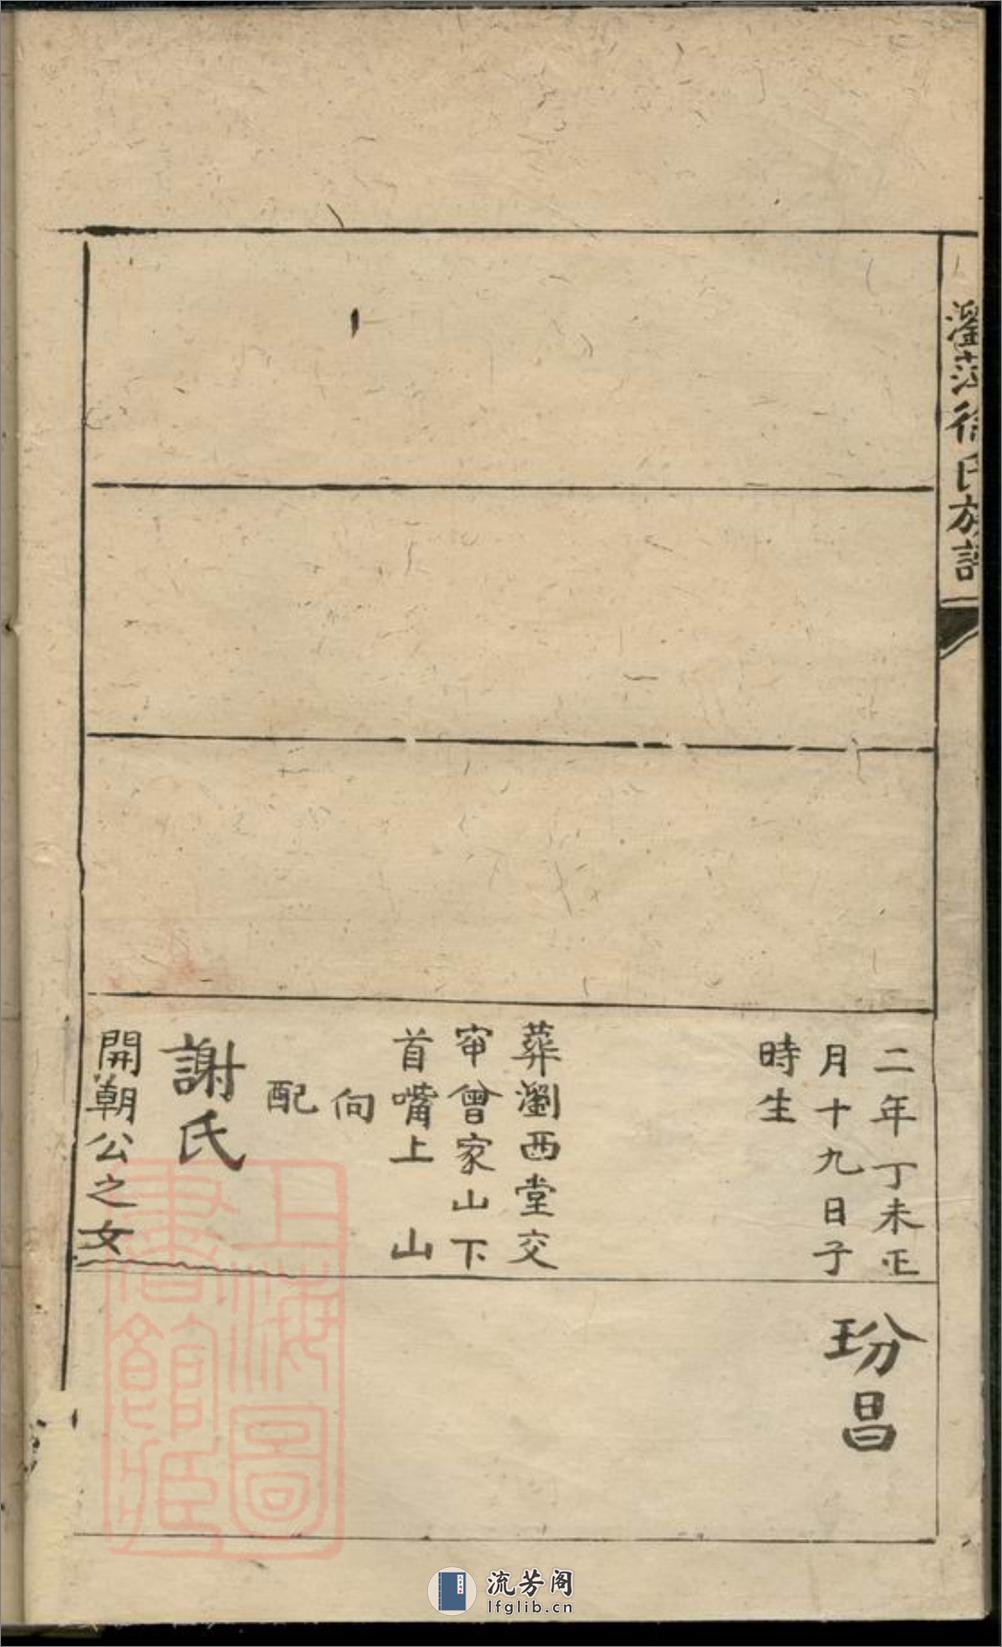 瀏萍徐氏族譜
二年丁未正
月十九日子
時生
葬瀏西堂交
甯曾家山下
首嘴上　山
向
配
謝氏
開朝公之女
玢昌
上海圖
書館藏
流芳阁
lfglib.cn